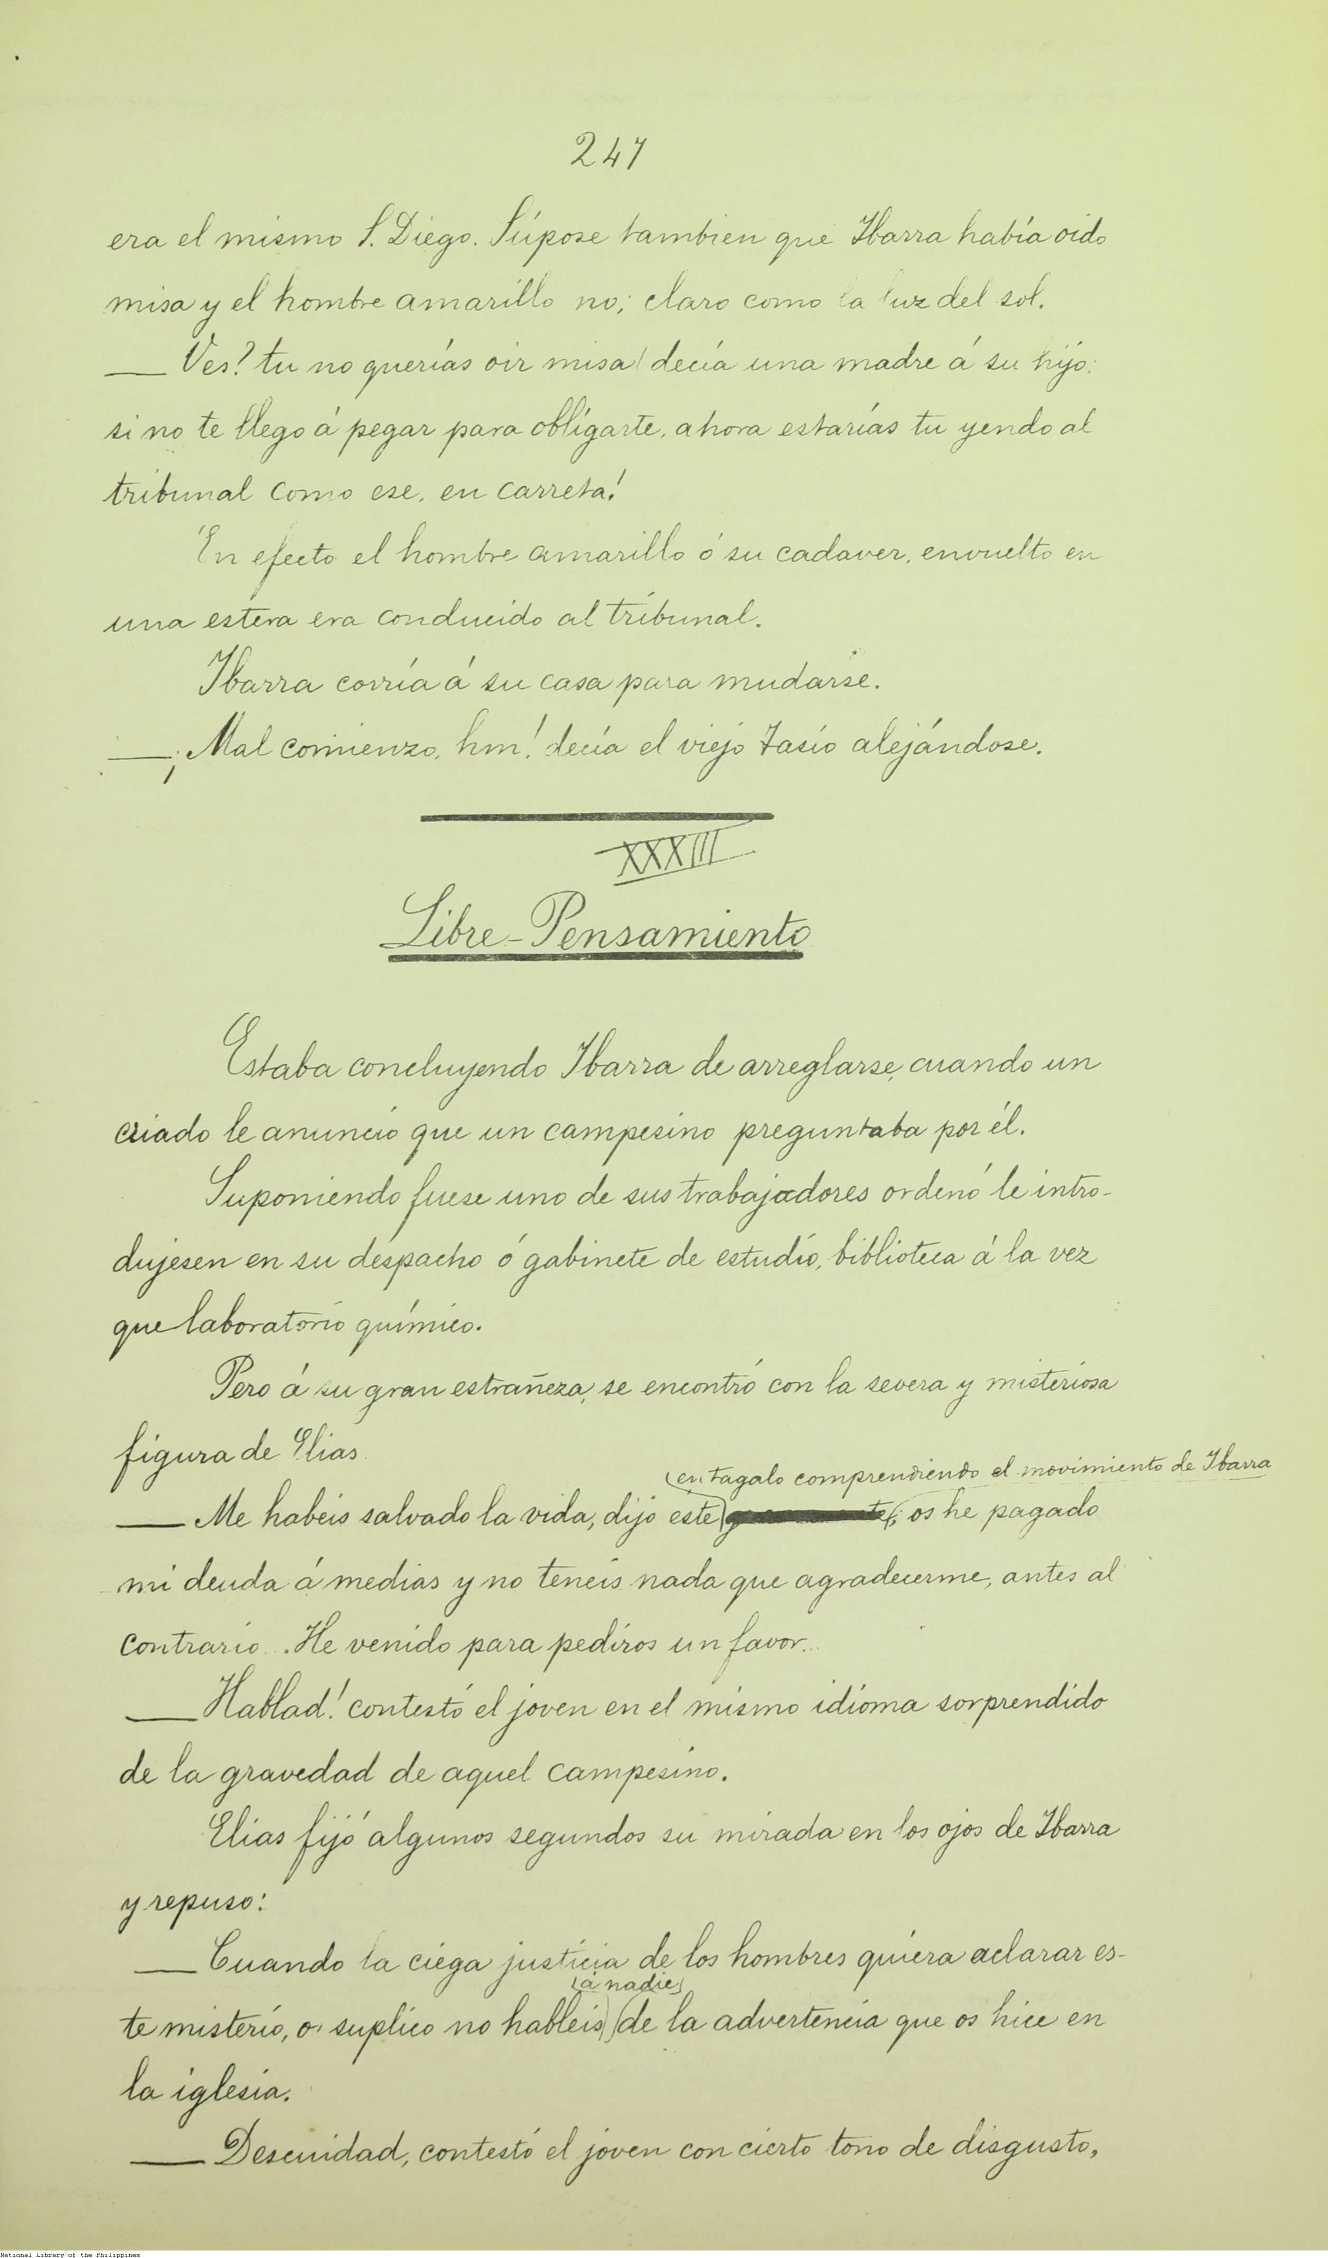 247
era el mismo S. Diego. Súpose tambien que Ibarra había oido
misa y el hombre amarillo no; claro como la luz del sol.
— Ves? tu no querías oir misa! decía una madre á su hijo;
si no te llego á pegar para obligarte, ahora estarías tu yendo al
tribunal como ese, en carreta!
En efecto el hombre amarillo ó su cadaver, envuelto en
una estera era conducido al tribunal.
Ibarra corría á su casa para mudarse.
— ¡Mal comienzo, hm! decía el viejo Tasio alejándose.
XXXIII
Libre-Pensamiento
Estaba concluyendo Ibarra de arreglarse, cuando un
criado le anunció que un campesino preguntaba por él.
Suponiendo fuese uno de sus trabajadores ordenó le intro-
dujesen en su despacho ó gabinete de estudio, biblioteca á la vez
que laboratorio químico.
Pero á su gran estrañeza, se encontró con la severa y misteriosa
figura de Elias.
en tagalo comprendiendo el movimiento de Ibarra
— Me habeis salvado la vida, dijo este; os he pagado
mi deuda á medias y no teneis nada que agradecerme, antes al
contrario... He venido para pediros un favor...
— Hablad! contestó el joven en el mismo idioma sorprendido
de la gravedad de aquel campesino.
Elias fijó algunos segundos su mirada en los ojos de Ibarra
y repuso:
— Cuando la ciega justicia de los hombres quiera aclarar es-
á nadie
te misterio, os suplico no hableis de la advertencia que os hice en
la iglesia.
— Descuidad, contestó el joven con cierto tono de disgusto,
National Library of the Philippines